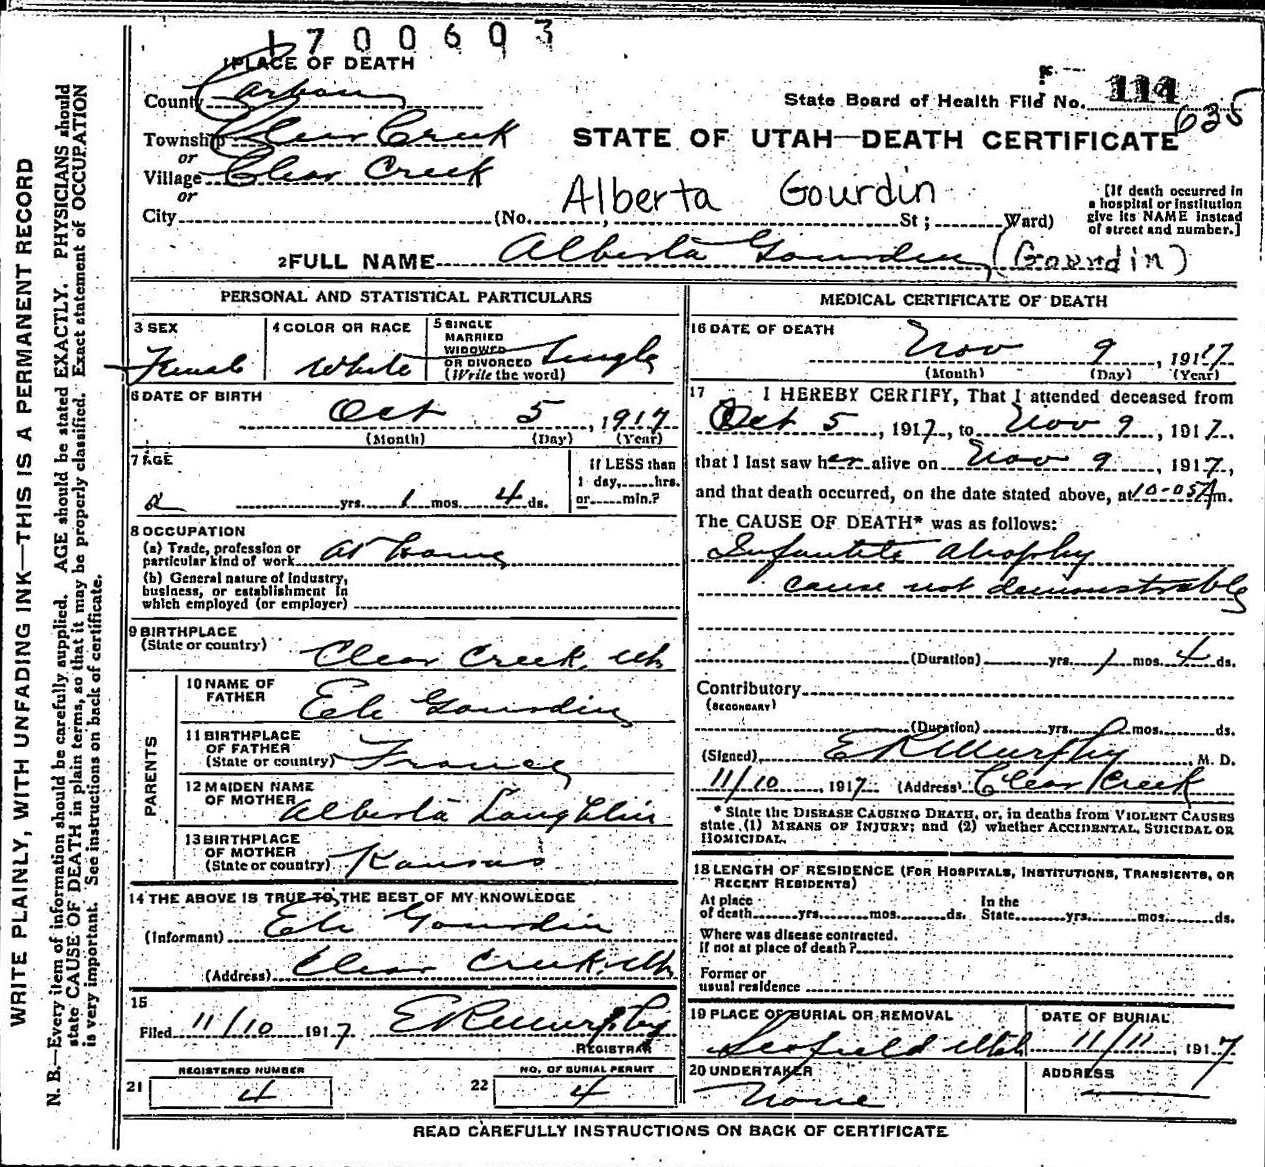 1700603
1 PLACE OF DEATH
County Carbon
State Board of Health File No. 114
635
Township Clear Creek
or
STATE OF UTAH—DEATH CERTIFICATE
Village Clear Creek
or
Alberta Gourdin
City (No. St; Ward)
[If death occurred in
a hospital or institution
give its NAME instead
of street and number.]
2 FULL NAME Alberta Gourdin (Gourdin)
PERSONAL AND STATISTICAL PARTICULARS
3 SEX
Female
4 COLOR OR RACE
White
5 SINGLE
MARRIED
WIDOWED
OR DIVORCED
(Write the word)
Single
6 DATE OF BIRTH
Oct 5, 1917
(Month) (Day) (Year)
7 AGE
yrs. 1 mos. 4 ds.
If LESS than
1 day,......hrs.
or......min.?
8 OCCUPATION
(a) Trade, profession or
particular kind of work at home
(b) General nature of Industry,
business, or establishment in
which employed (or employer)
9 BIRTHPLACE
(State or country) Clear Creek, Utah
PARENTS
10 NAME OF
FATHER Eli Gourdin
11 BIRTHPLACE
OF FATHER
(State or country) France
12 MAIDEN NAME
OF MOTHER Alberta Laughlin
13 BIRTHPLACE
OF MOTHER
(State or country) Kansas
14 THE ABOVE IS TRUE TO THE BEST OF MY KNOWLEDGE
(Informant) Eli Gourdin
(Address) Clear Creek, Utah
15
Filed 11/10 1917 E R Murphy
REGISTRAR
REGISTERED NUMBER
21 4
NO. OF BURIAL PERMIT
22 4
MEDICAL CERTIFICATE OF DEATH
16 DATE OF DEATH
Nov 9, 1917
(Month) (Day) (Year)
17 I HEREBY CERTIFY, That I attended deceased from
Oct 5, 1917, to Nov 9, 1917,
that I last saw her alive on Nov 9, 1917,
and that death occurred, on the date stated above, at 10-05 A m.
The CAUSE OF DEATH* was as follows:
Infantile Atrophy
cause not demonstrable
(Duration) yrs. 1 mos. 4 ds.
Contributory
(SECONDARY)
(Duration) yrs. mos. ds.
(Signed) E R Murphy M. D.
11/10, 1917 (Address) Clear Creek
* State the DISEASE CAUSING DEATH, or, in deaths from VIOLENT CAUSES
state (1) MEANS OF INJURY; and (2) whether ACCIDENTAL, SUICIDAL OR
HOMICIDAL.
18 LENGTH OF RESIDENCE (FOR HOSPITALS, INSTITUTIONS, TRANSIENTS, OR
RECENT RESIDENTS)
At place
of death yrs. mos. ds.
In the
State yrs. mos. ds.
Where was disease contracted,
if not at place of death?
Former or
usual residence
19 PLACE OF BURIAL OR REMOVAL
Scofield Utah
DATE OF BURIAL
11/11, 1917
20 UNDERTAKER
None
ADDRESS
READ CAREFULLY INSTRUCTIONS ON BACK OF CERTIFICATE
WRITE PLAINLY, WITH UNFADING INK—THIS IS A PERMANENT RECORD
N. B.—Every item of information should be carefully supplied. AGE should be stated EXACTLY. PHYSICIANS should
state CAUSE OF DEATH in plain terms, so that it may be properly classified. Exact statement of OCCUPATION
is very important. See instructions on back of certificate.